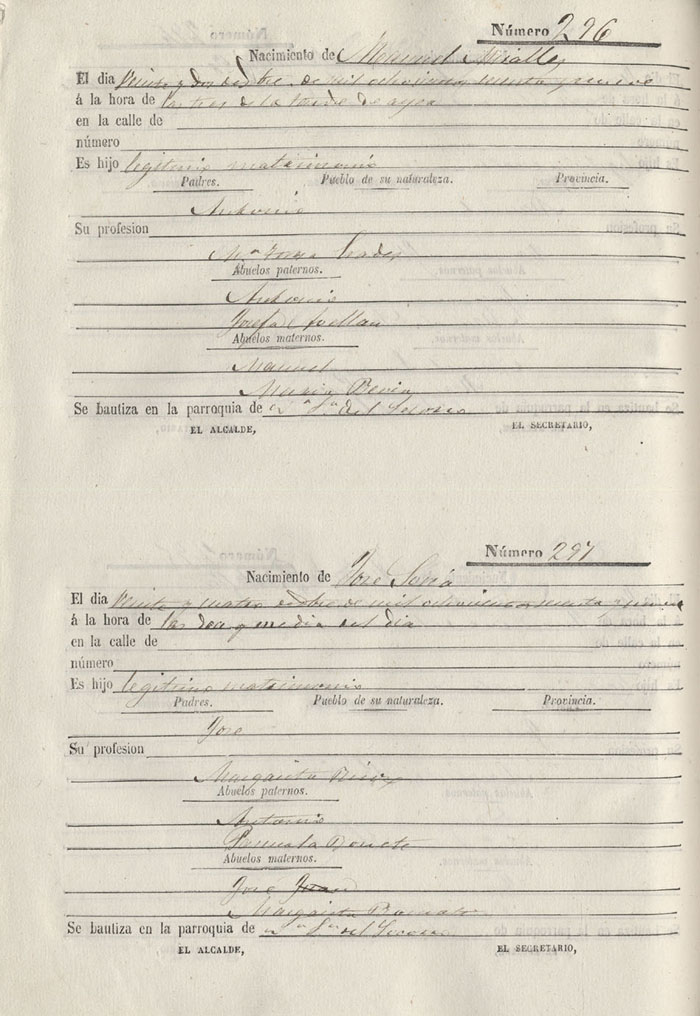 Número 296
Nacimiento de Manuel Miralles
El dia Veinte y dos de mil ochocientos y nueve
á la hora de las tres de la tarde de ayer
en la calle de
número
Es hijo legitimo matrimonio
Padres. Pueblo de su naturaleza. Provincia.
Antonio
Su profesion
Mª
Abuelos paternos.
Antonio
Josefa
Abuelos maternos.
Manuel
Maria
Se bautiza en la parroquia de Nª Sª del Socorro
EL ALCALDE, EL SECRETARIO,
Número 297
Nacimiento de Jose Soria
El dia Veinte y cuatro de mil ochocientos
á la hora de las doce y media del dia
en la calle de
número
Es hijo legitimo matrimonio
Padres. Pueblo de su naturaleza. Provincia.
Jose
Su profesion
Margarita
Abuelos paternos.
Antonio
Abuelos maternos.
Jose Juan
Margarita
Se bautiza en la parroquia de Nª Sª del Socorro
EL ALCALDE, EL SECRETARIO,